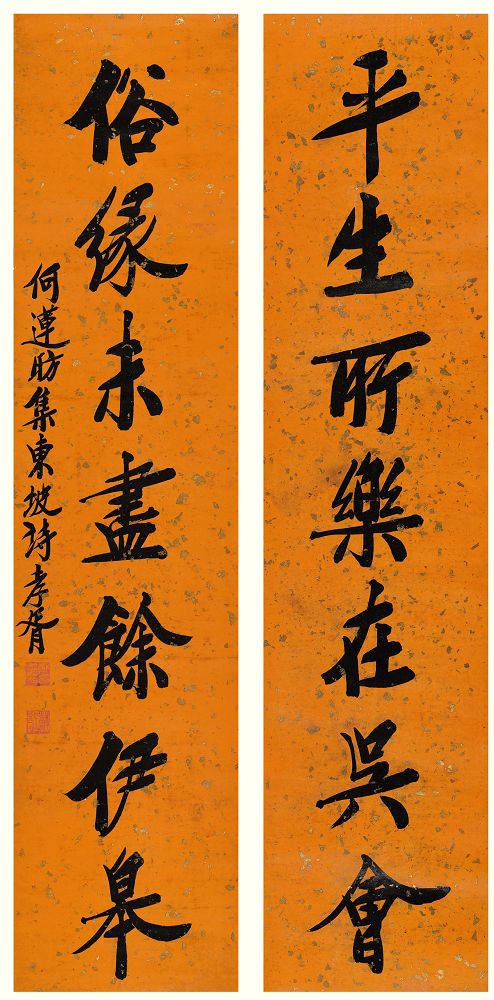 平生所樂在吳會
俗緣未盡餘伊皋
何蓮舫集東坡詩孝胥